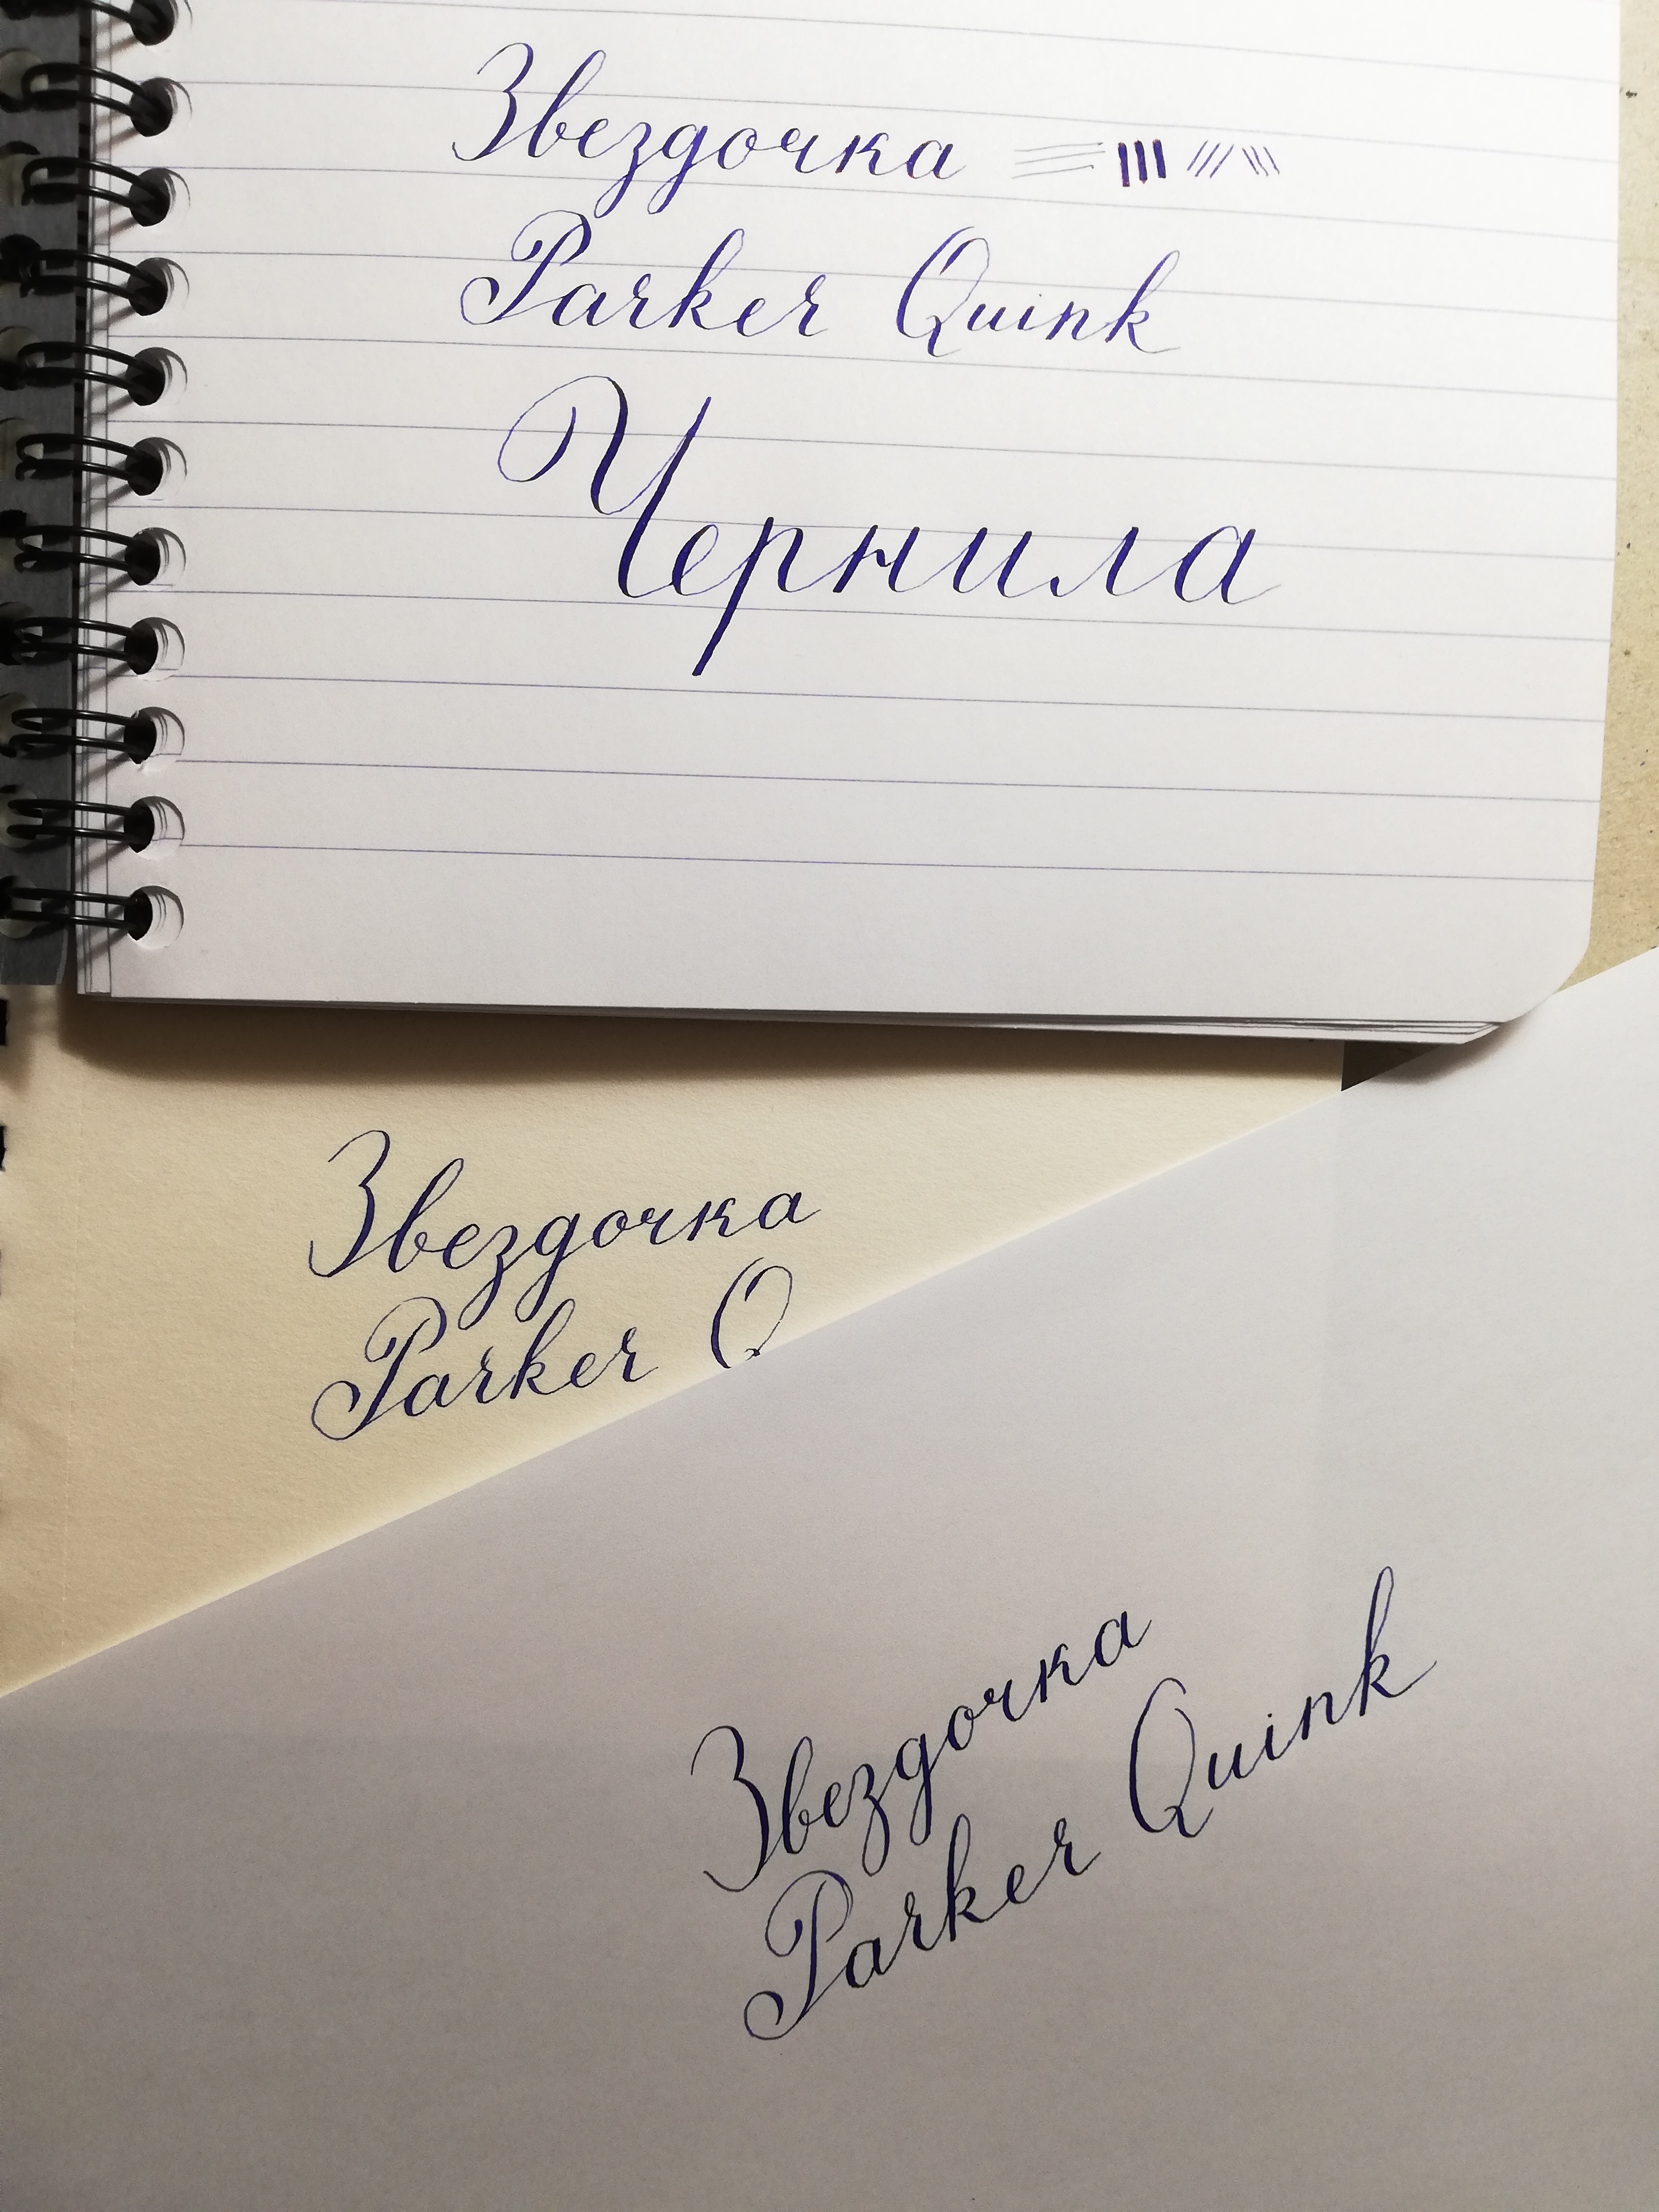 Звездочка
Parker Quink
Чернила
Звездочка
Parker Q
Звездочка
Parker Quink